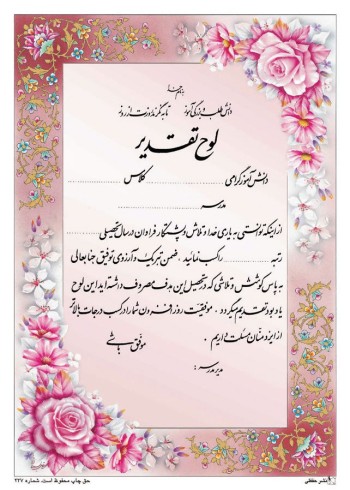 بنام خدا
دانش طلب و بزرگی آموز تا به نگرند روزت از روز
لوح تقدیر
دانش آموز گرامی .................... کلاس ....................
مدرسه ....................
از اینکه توانستی به یاری خدا و تلاش و پشتکار فراوان در سال تحصیلی ..........
رتبه .................... را کسب نمائید . ضمن تبریک و آرزوی توفیق جنابعالی
به پاس کوشش و تلاشی که در تحصیل این هدف مصروف داشته اید این لوح
یادبود تقدیم میگردد . موفقیت روزافزون شما را در کسب درجات بالاتر
از ایزد منان مسئلت داریم .
موفق باشی
مدیر مدرسه :
نشر حافظی
حق چاپ محفوظ است. شماره ۲۲۷